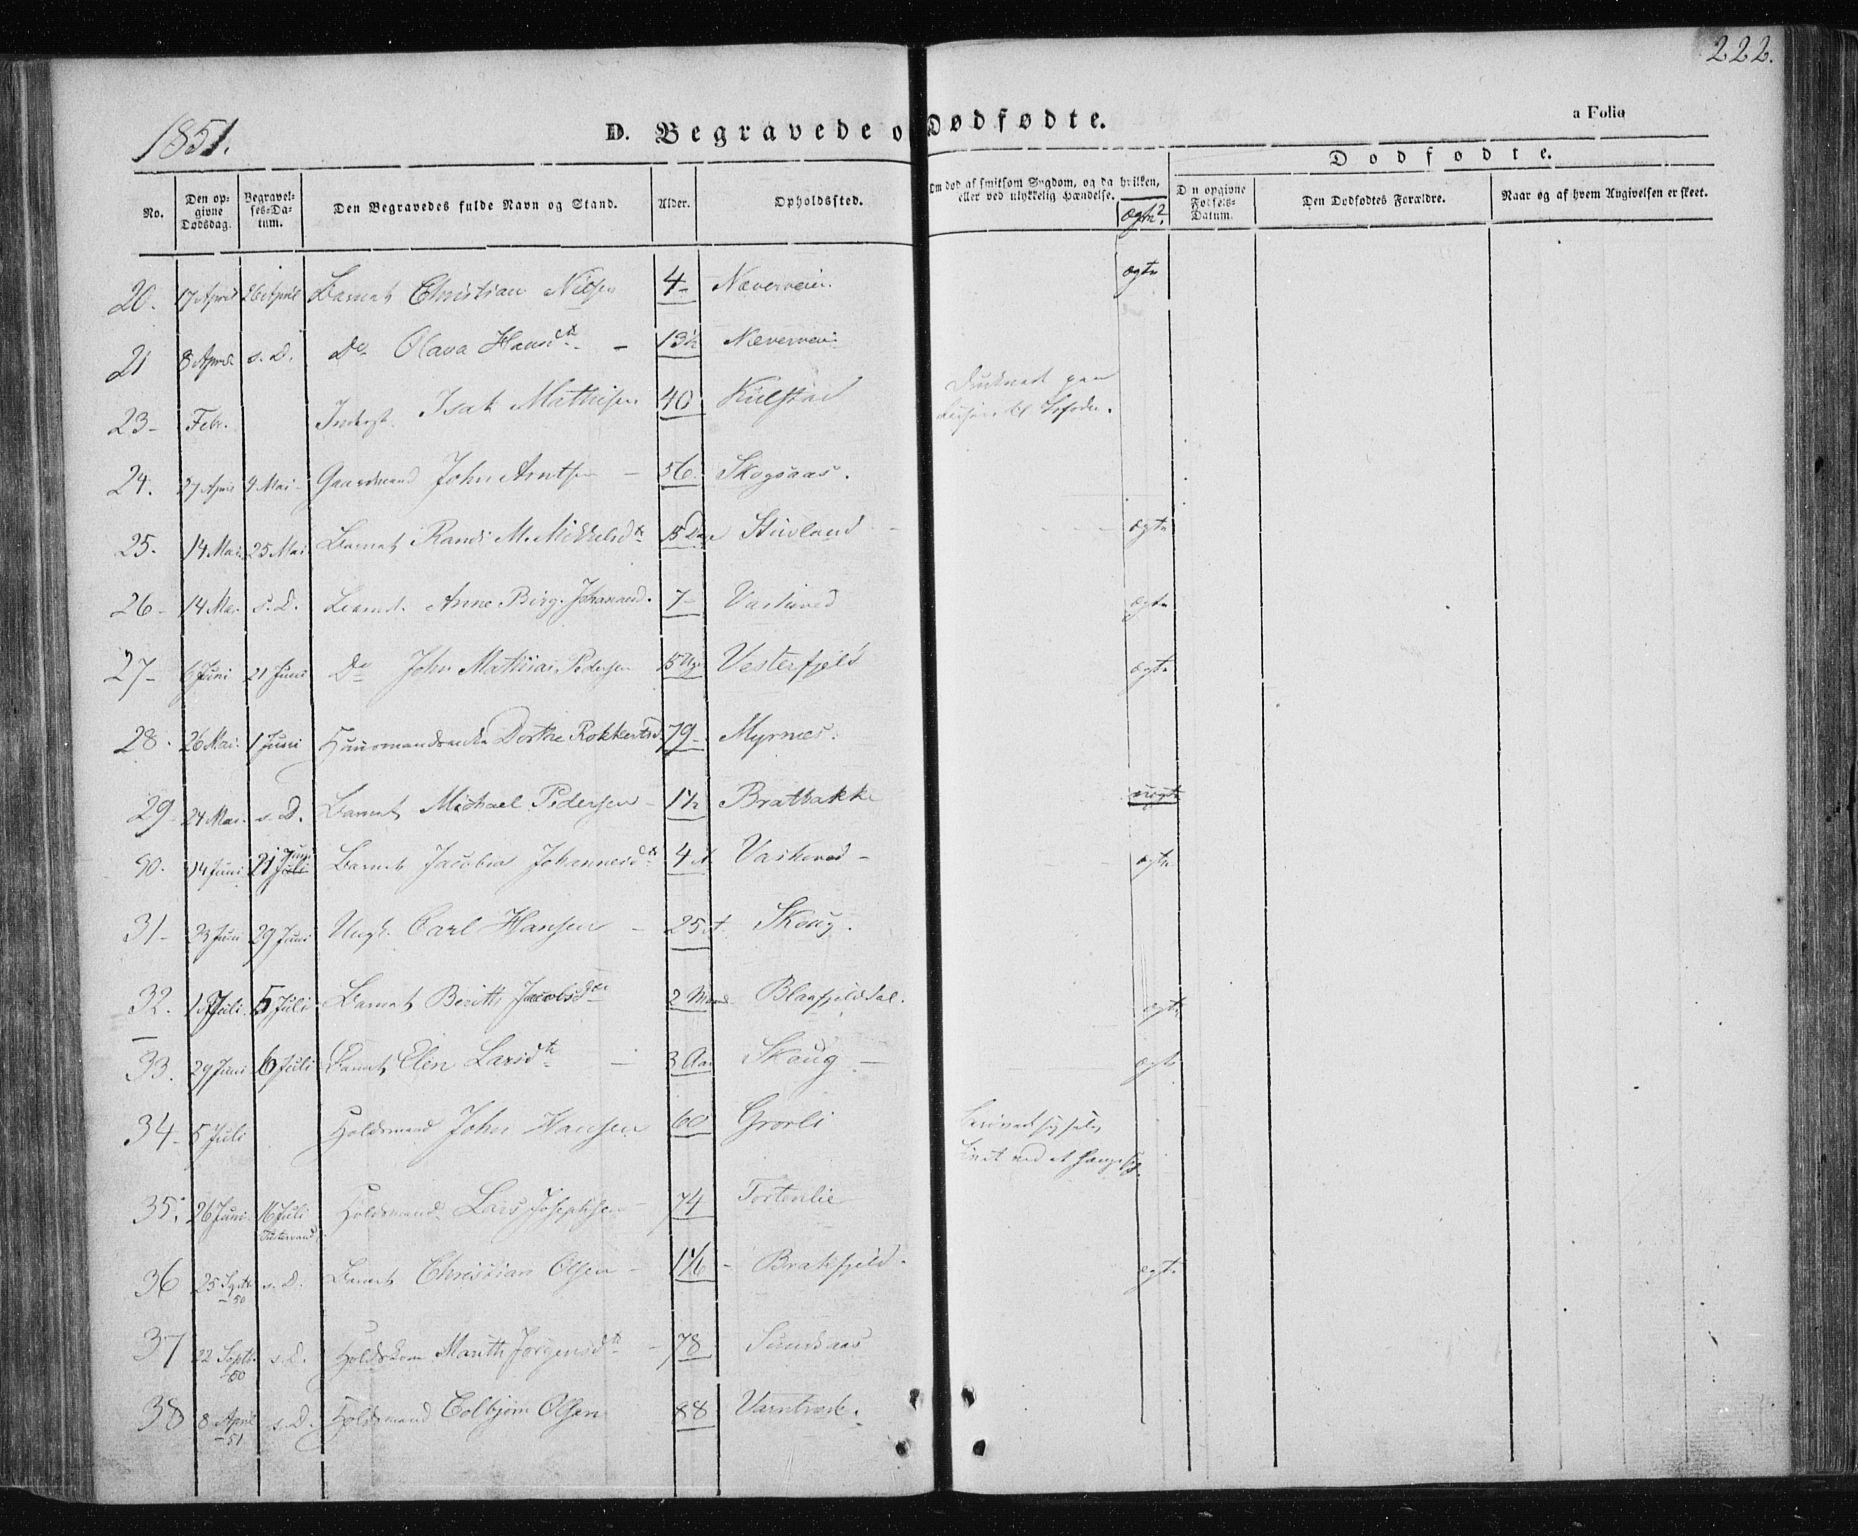 222.
1851.
D. Begravede o Dødfødte.
a Folio
No.
Den op-
givne
Dødsdag.
Begravel-
ses-Da-
tum.
Den Begravedes fulde Navn og Stand.
Alder.
Opholdssted.
Om død af smitsom Sygdom, og da hvilken,
eller ved ulykkelig Hændelse.
ægte?
Dødfødte.
D n opgivne
Fødsels-
Datum.
Den Dødfødtes Forældre.
Naar og af hvem Angivelsen er skeet.
20. 17 April 26 April Barnet Christian Nilsen 4 - Næverveien. ægte
21 8 April s. D. Do Olava Hansdtr. - 13½ Næverveien
23 - Febr. Inderst. Isak Mathisen 40 Kulstad Druknet paa Reisen til Lofoden.
24. 27 April 9 Mai - Gaardmand John Arntsen - 56. Skogsaas.
25. 14 Mai 25 Mai Barnet Randi M. Mikkelsdtr 15 Dage Stuvland - ægte
26 - 14 Mai s. D. Barnet Anne Birg. Johannesd. 7 - Vastved ægte
27 - 6 Juni 21 Juni Do John Mathias Pedersen 15 Uger Vesterfjeld ægte
28. 26 Mai. 1 Juni Huusmandsenke Dorthe Rokkertsd. 79 - Myrnes.
29 - 24 Mai. s. D. Barnet Michael Pedersen - 1½ Bratbakke uægte
30. 14 Juni 21 Juni Juli Barnet Jacobia Johannesdtr 4 A Vaskved - ægte
31 - 23 Juni 29 Juni Ungk. Carl Hansen - 25 A. Skoug.
32. 1 Juli. 5 Juli Barnet Berith Jacobsdtr 2 Maan Blaafjelddal. ægte
33. 29 Juni 6 Juli Barnet Elen Larsdtr - 3 Aar Skoug - ægte
34 - 5 Juli Holdsmand John Hansen 60 Grovli Livet ved at hænge sig.
35. 26 Juni 16 Juli Holdsmand Lars Josephsen - 74 Tortenlie
36 25 Septbr - 50 s. D. Barnet Christian Olsen - 1 1/6 - Bratfjeld. ægte
37 22 Septbr. - 50 s. D. Holdskone Marith Jørgensdtr - 78 Sundsaas
38 8 April - 51 s. D. Holdsmand Colbjørn Olsen 88 Varntræsk.